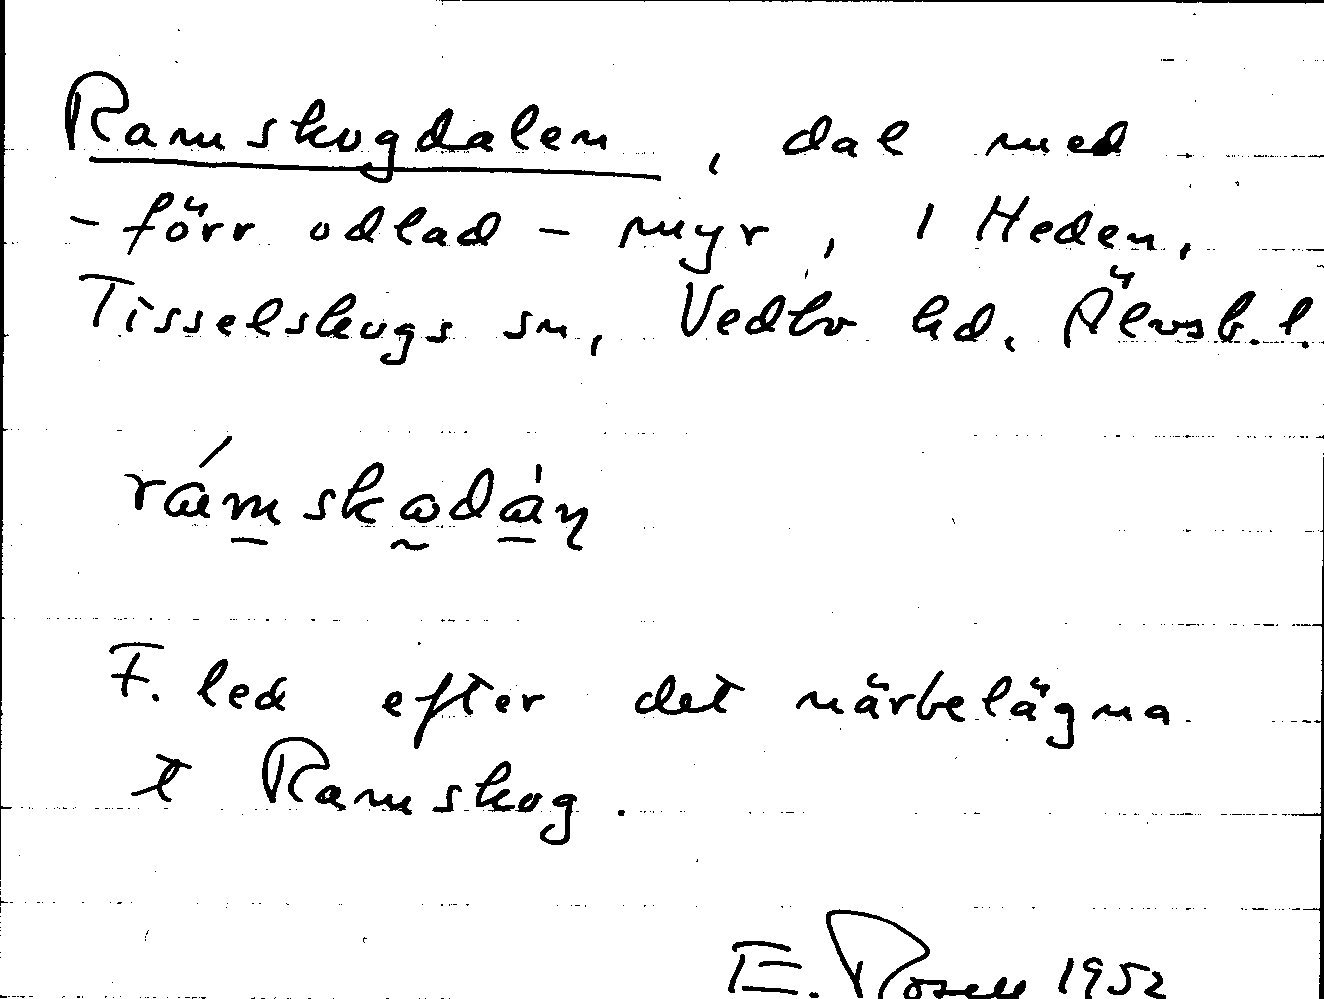 Ramskogdalen, dal med
- förr odlad - myr, 1 Heden,
Tisselskogs sn, Vedbo hd. Älvsb. l.
F. led efter det närbelägna
t Ramskog.
E. Rosell 1952